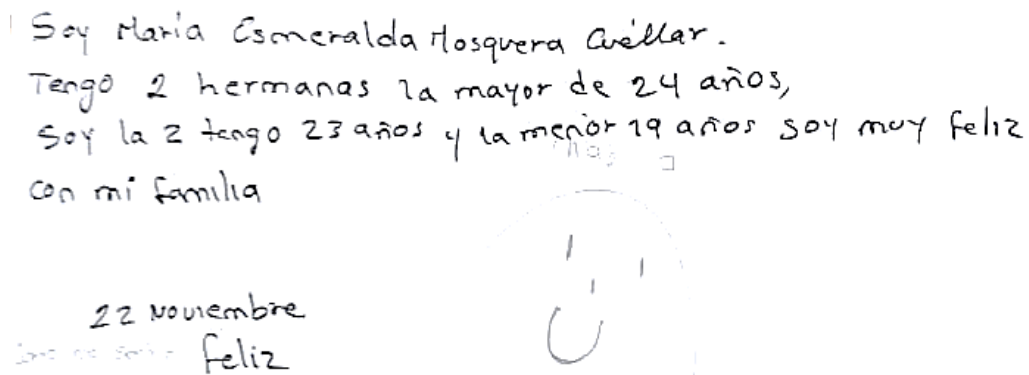 Soy María Esmeralda Mosquera Cuéllar.
Tengo 2 hermanas la mayor de 24 años,
Soy la 2 tengo 23 años y la menor 19 años soy muy feliz
con mi familia
22 Noviembre
feliz